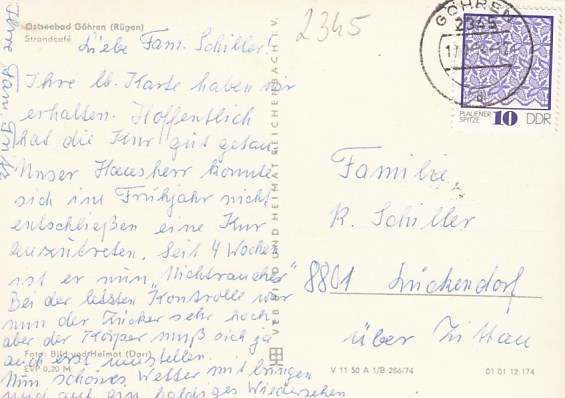 Ostseebad Göhren (Rügen)
Strandcafé
2345
Liebe Fam. Schiller!
Ihre lb. Karte haben wir
erhalten. Hoffentlich
hat die Kur gut getan.
Unser Hausherr konnte
sich im Frühjahr nicht
entschließen eine Kur
anzutreten. Seit 4 Wochen
ist er nun "Nichtraucher"
Bei der letzten Kontrolle war
nun der Zucker sehr hoch,
aber der Körper muß sich ja
auch erst umstellen.
Nun schönes Wetter mit bringen
und auf ein baldiges Wiedersehen
Ihre Fam.
Foto: Bild und Heimat (Darr)
EVP 0,20 M
VEB BILD UND HEIMAT REICHENBACH I. V.
GÖHREN
2345
PLAUENER
SPITZE 10 DDR
Familie
R. Schiller
8801 Lückendorf
über Zittau
V 11 50 A 1/B 266/74 01 01 12 174